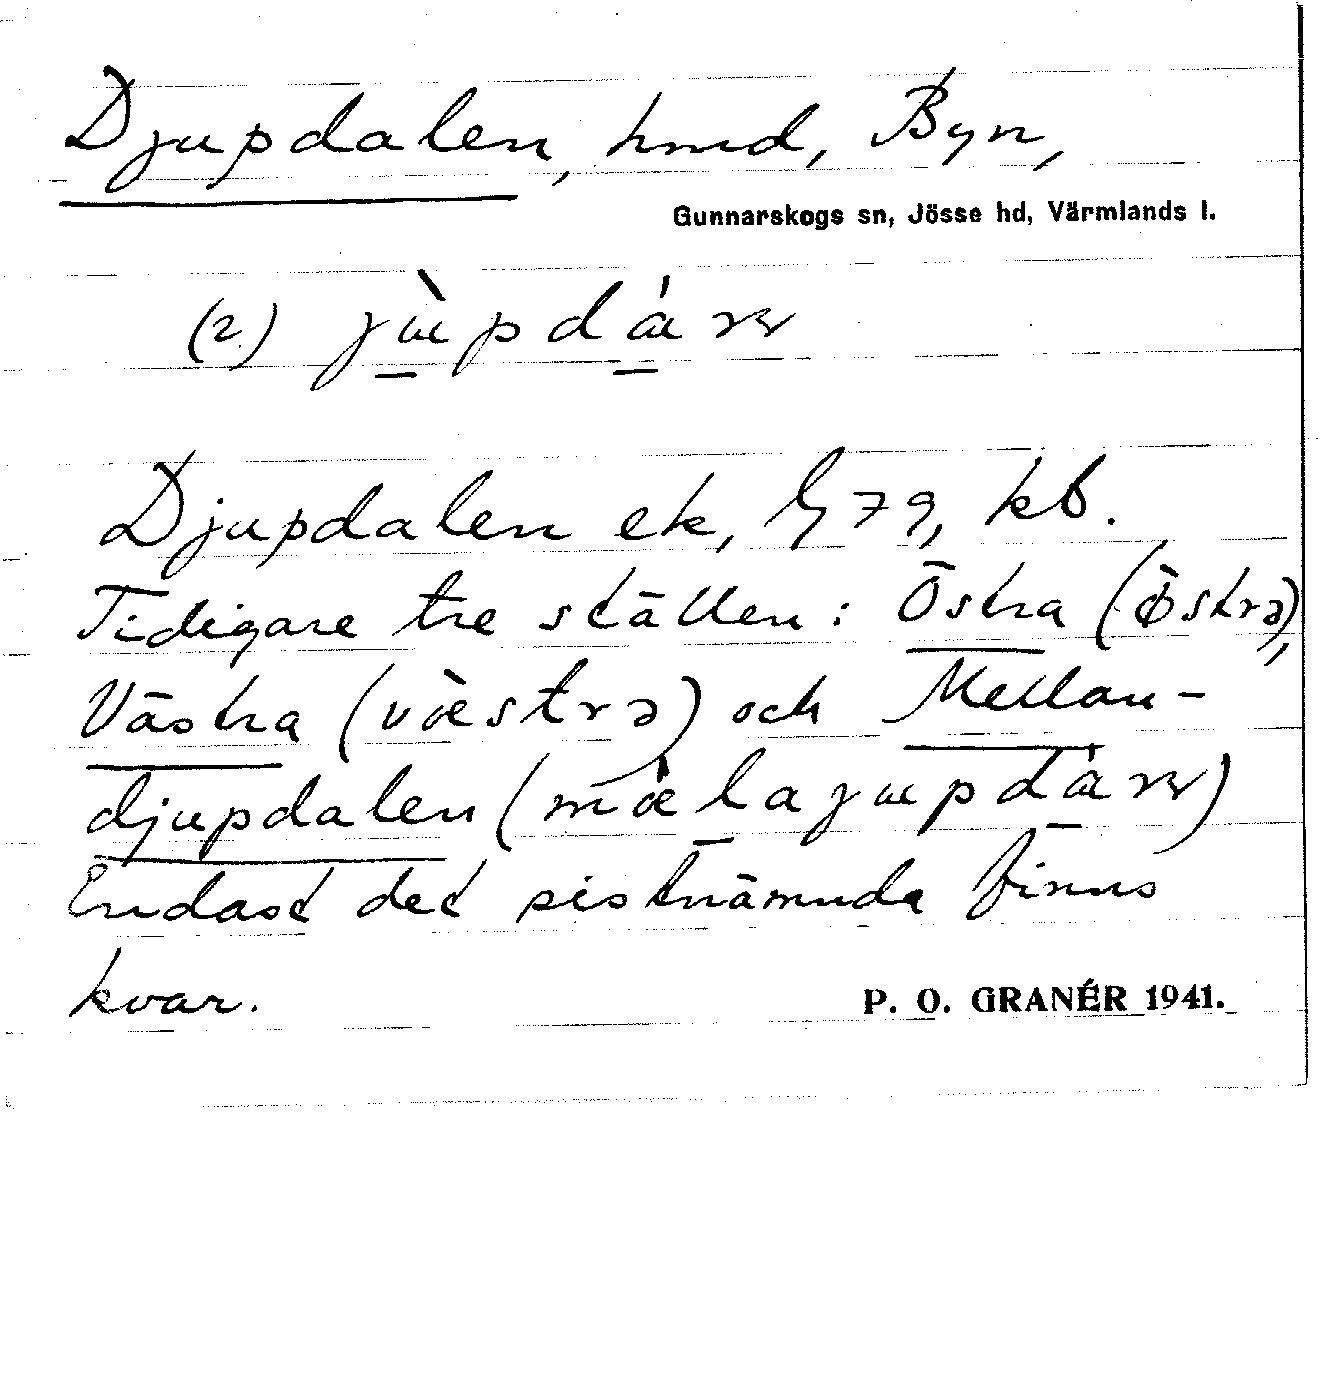 Djupdalen, hmd, Byn,
Gunnarskogs sn, Jösse hd, Värmlands l.
(2)
Djupdalen ek, G 79, kb.
Tidigare tre ställen: Östra (östrə),
Västra (væ̀strə) och Mellan-
djupdalen
Endast det sistnämnda finns
kvar.
P. O. GRANÉR 1941.